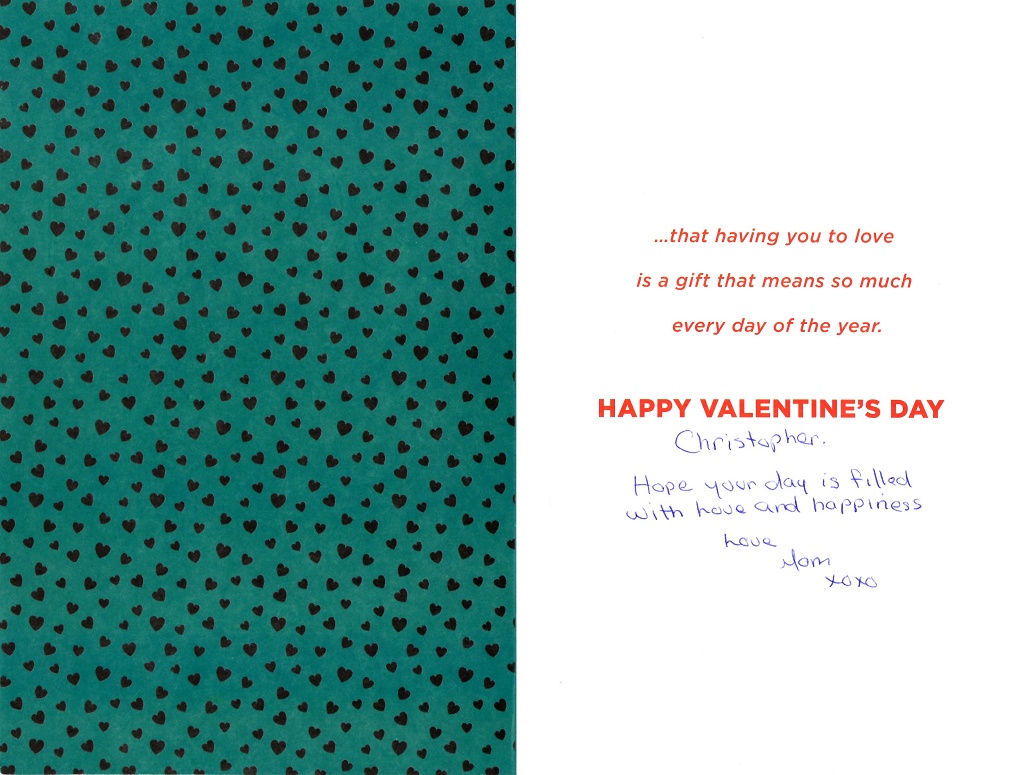 ...that having you to love
is a gift that means so much
every day of the year.
HAPPY VALENTINE'S DAY
Christopher.
Hope your day is filled
with Love and happiness
Love
Mom
xoxo